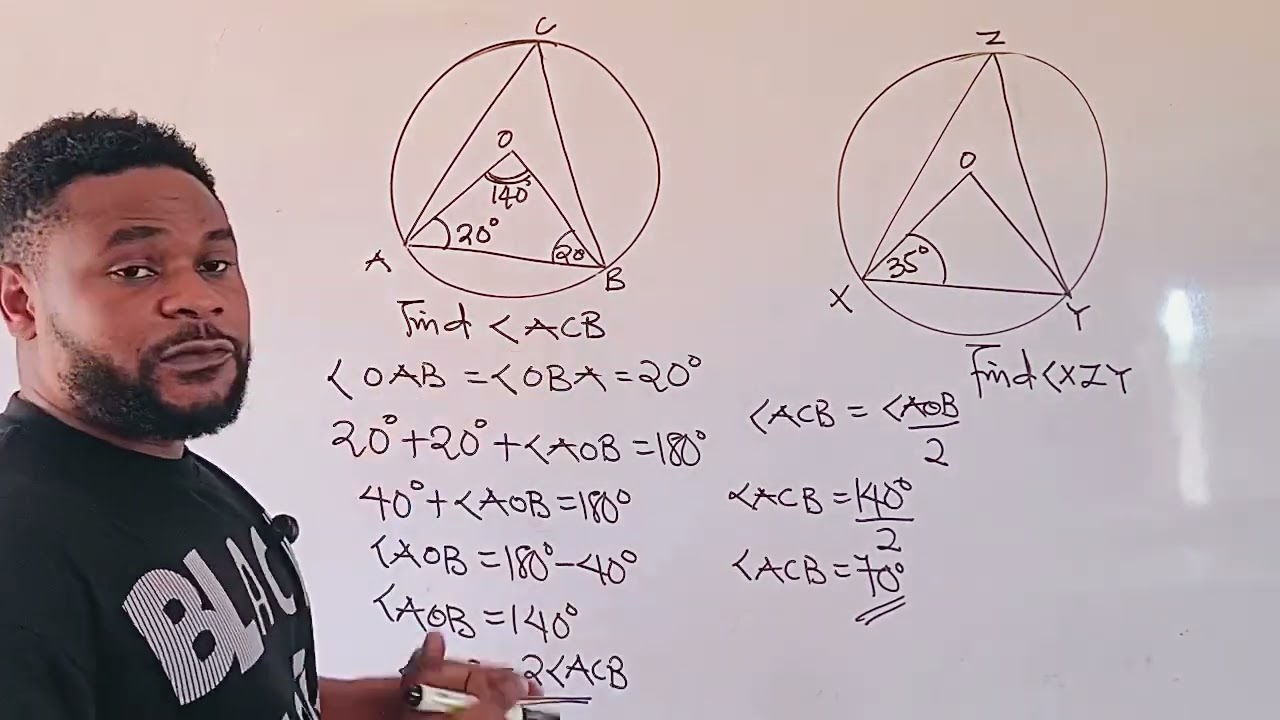 C
O
140°
20°
20
A
B
Find <ACB
<OAB = <OBA = 20°
20° + 20° + <AOB = 180°
40° + <AOB = 180°
<AOB = 180° - 40°
<AOB = 140°
2<ACB
Z
O
35°
X
Y
Find <XZY
<ACB = <AOB
2
<ACB = 140°
2
<ACB = 70°
BLAC